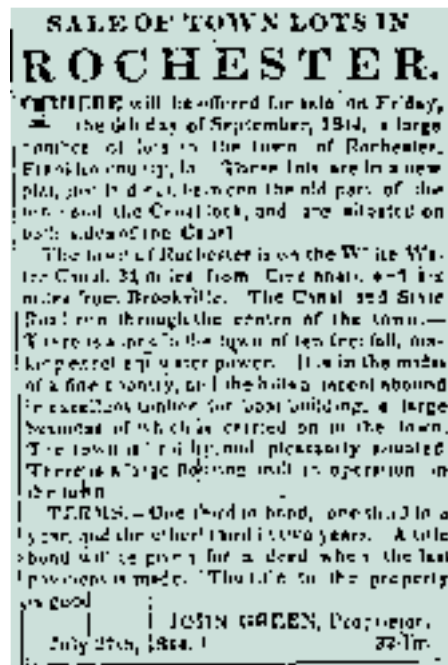 SALE OF TOWN LOTS IN
ROCHESTER.
THERE will be offered for sale on Friday,
the 6th day of September, 1844, a large
number of lots in the town of Rochester,
Franklin county, Ia. These lots are in a new
plat, just laid out between the old part of the
town and the Canal lock, and are situated on
both sides of the Canal
The town of Rochester is on the White Wa-
ter Canal, miles from Cincinnati, and six
miles from Brookville. The Canal and State
Road run through the centre of the town.—
There is a lock in the town of ten feet fall,
excellent water power. It is in the midst
of a fine country, and the hills around abound
in excellent timber for boat building, a large
business of which is carried on in the town.
The town is healthy, and pleasantly situated
There is a large flouring mill in operation in
the town
TERMS.—One third in hand, one third in a
year, and the other third in two years. A title
bond will be given for a deed when the last
payment is made. The title to the property
is good
JOHN GREEN, Proprietor.
July 27th, 1844.